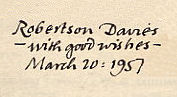 Robertson Davies
– with good wishes –
March 20: 1957